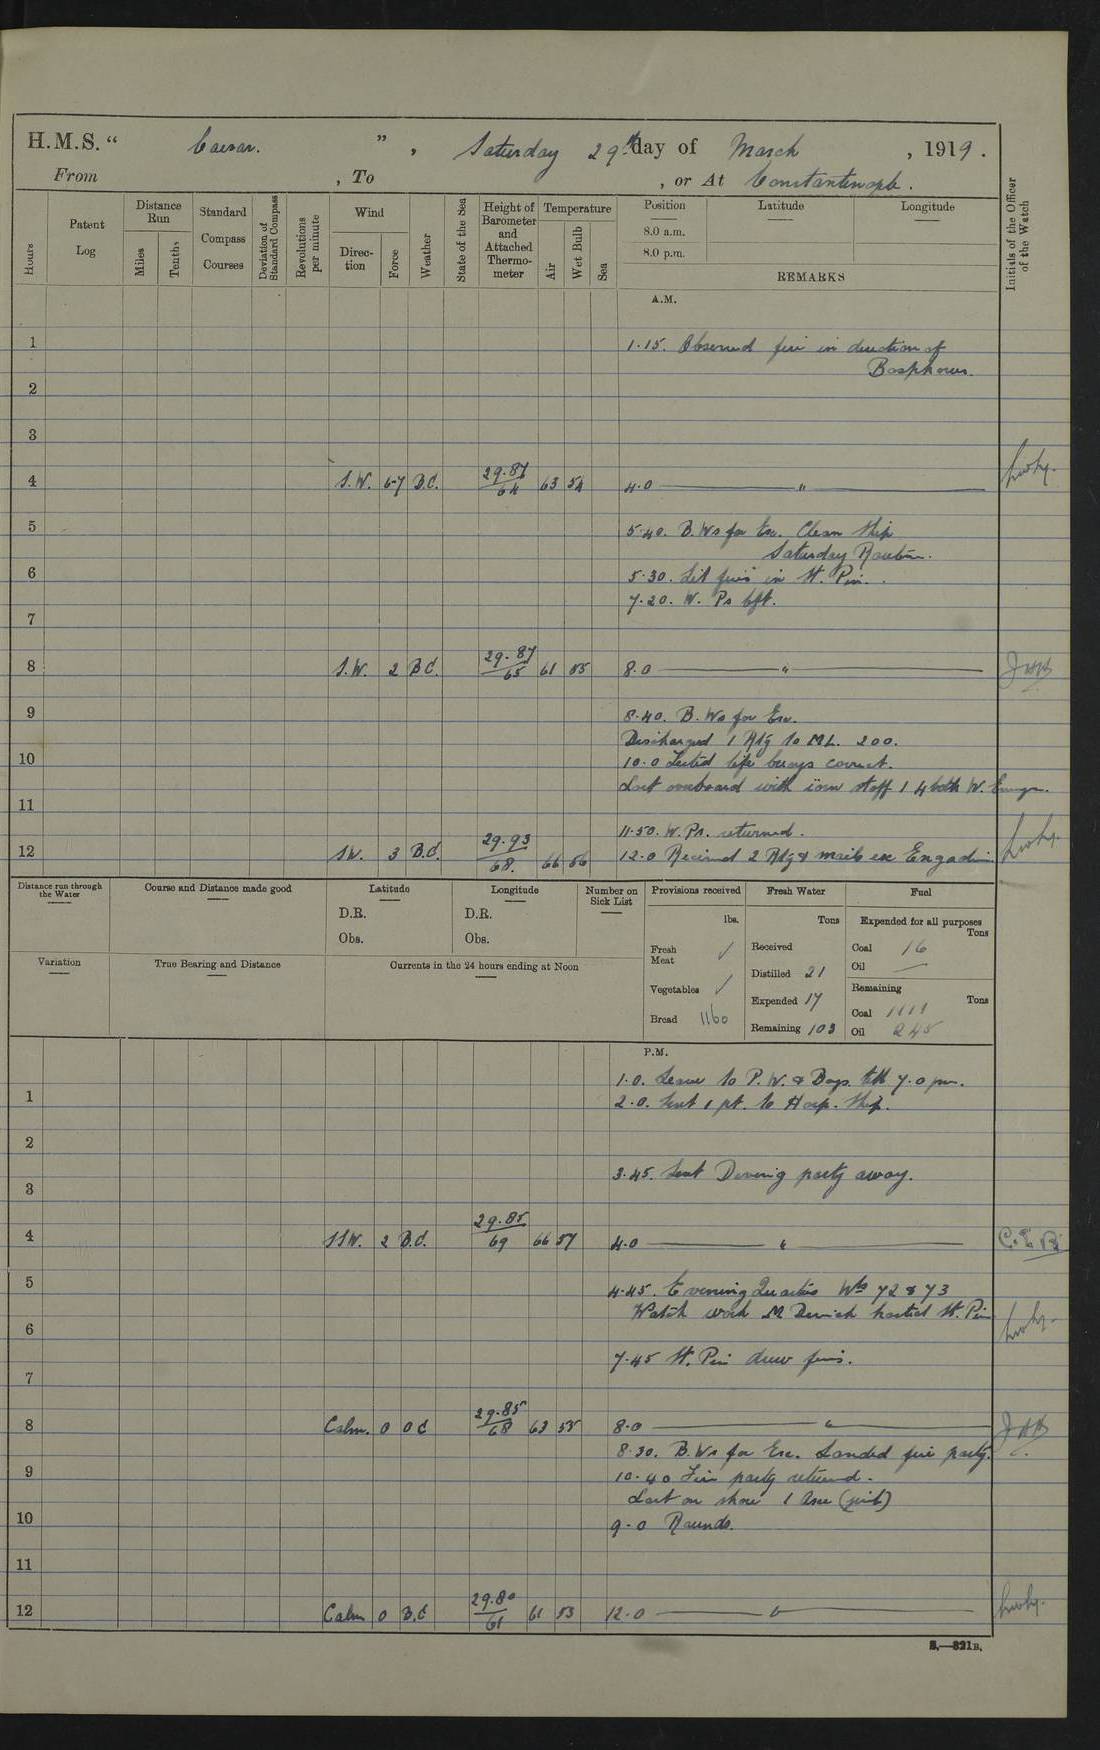 H.M.S. " Caesar. " , Saturday 29th day of March , 1919.
From , To , or At Constantinople.
Hours
Patent Log
Distance Run
Miles
Tenths
Standard Compass Courses
Deviation of Standard Compass
Revolutions per minute
Wind
Direction
Force
Weather
State of the Sea
Height of Barometer and Attached Thermometer
Temperature
Air
Wet Bulb
Sea
Position Latitude Longitude
8.0 a.m.
8.0 p.m.
REMARKS
Initials of the Officer of the Watch
A.M.
1
1.15. Observed fire in direction of
Bosphorus.
2
3
4 S.W. 6-7 B.C. 29.87 64 63 54 4.0 "
5
5.40. B.Ws for Ex. Clean Ship
Saturday Routine.
6 5.30. Lit fires in St. Pin.
7.20. W. Ps left.
7
8 S.W. 2 B.C. 29.87 65 61 55 8.0 "
9 8.40. B.Ws for Ex.
Discharged 1 Rtg to ML. 200.
10 10.0 Tested life buoys correct.
Lost overboard with iron staff 1 4 W.
11
11.50. W.Ps. returned.
12 S.W. 3 B.C. 29.93 68. 66 56 12.0 Received 2 Rtg & mails ex Engadine
Distance run through the Water
Course and Distance made good
Latitude
D.R.
Obs.
Longitude
D.R.
Obs.
Number on Sick List
Provisions received
lbs.
Fresh Meat ✓
Vegetables ✓
Bread 1160
Fresh Water
Tons
Received
Distilled 21
Expended 17
Remaining 103
Fuel
Expended for all purposes
Tons
Coal 16
Oil —
Remaining
Tons
Coal 1111
Oil 245
Variation
True Bearing and Distance
Currents in the 24 hours ending at Noon
P.M.
1.0. Leave to P.W. & Boys till 7.0 pm.
1
2.0. Sent 1 pt. to Hosp. Ship.
2
3.45. Sent Diving party away.
3
4 S.S.W. 2 B.C. 29.85 69 66 57 4.0 "
5 4.45. Evening Quarters Wts 72 & 73
Watch work M Derrick hoisted St. Pin
6
7.45 St. Pin drew fires.
7
8 Calm. 0 O C 29.85 68 63 55 8.0 "
8.30. B.Ws for Ex. Landed fire party.
9 10.40 Fire party returned.
Lost on shore 1 Axe
10 9.0 Rounds.
11
12 Calm 0 B.C 29.80 61 61 53 12.0 "
S.—321B.